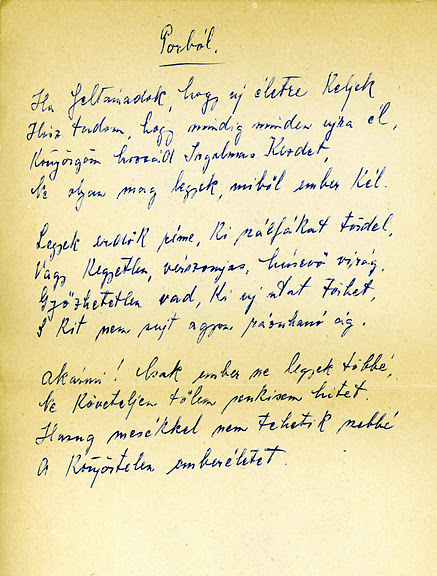 Porból.
Ha feltámadok, hogy uj életre Keljek
Hisz tudom, hogy mindig minden ujra él,
Könyörgöm hozzád Irgalmas Kezdet,
Ne olyan mag legyek, miből ember Kél.
Legyek erdők réme, Ki szálfákat tördel,
Vagy Kegyetlen, vérszomjas, húsevő virág,
Győzhetetlen vad, Ki uj utat törhet,
S Kit nem sujt agyon rázuhanó ág.
Akármi! Csak ember ne legyek többé,
Ne Követeljen tőlem senkisem hitet.
Hazug mesékkel nem tehetik szebbé
A Könyörtelen emberéletet.